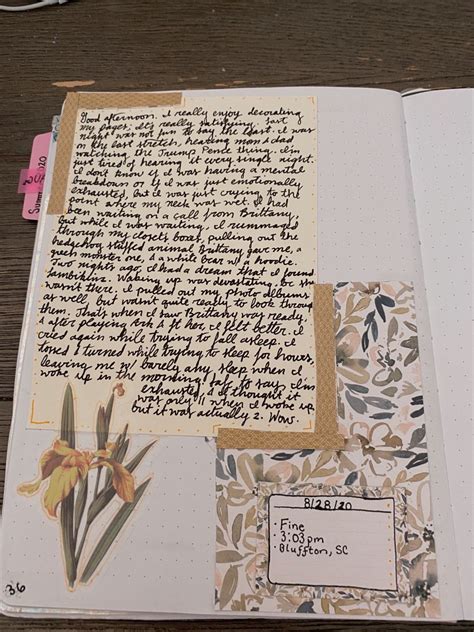 Good afternoon. I really enjoy decorating
my pages, it's really satisfying. Last
night was not fun to say the least. I was
on the last stretch, hearing mom & dad
watching the Trump Pence thing. I'm
just tired of hearing it every single night.
I don't know if I was having a mental
breakdown or if I was just emotionally
exhausted, but I was just crying to the
point where my neck was wet. I had
been waiting on a call from Brittany,
but while I was waiting, I rummaged
through my closets boxes, pulling out the
hedgehog stuffed animal Brittany gave me, a
green monster one, & a white bear w/ a hoodie.
Two nights ago, I had a dream that I found
Lambikins. Waking up was devastating, bc she
wasn't there. I pulled out my photo albums
as well, but wasn't quite ready to look through
them. That's when I saw Brittany was ready,
& after playing Ark & ft her, I felt better. I
cried again while trying to fall asleep. I
tossed & turned while trying to sleep for hours,
leaving me w/ barely any sleep when I
woke up in the morning. to say I'm
exhausted. I thought it
was only 11 when I woke up
but it was actually 2. Wow.
8/28/20
· Fine
· 3:03pm
· Bluffton, SC
36